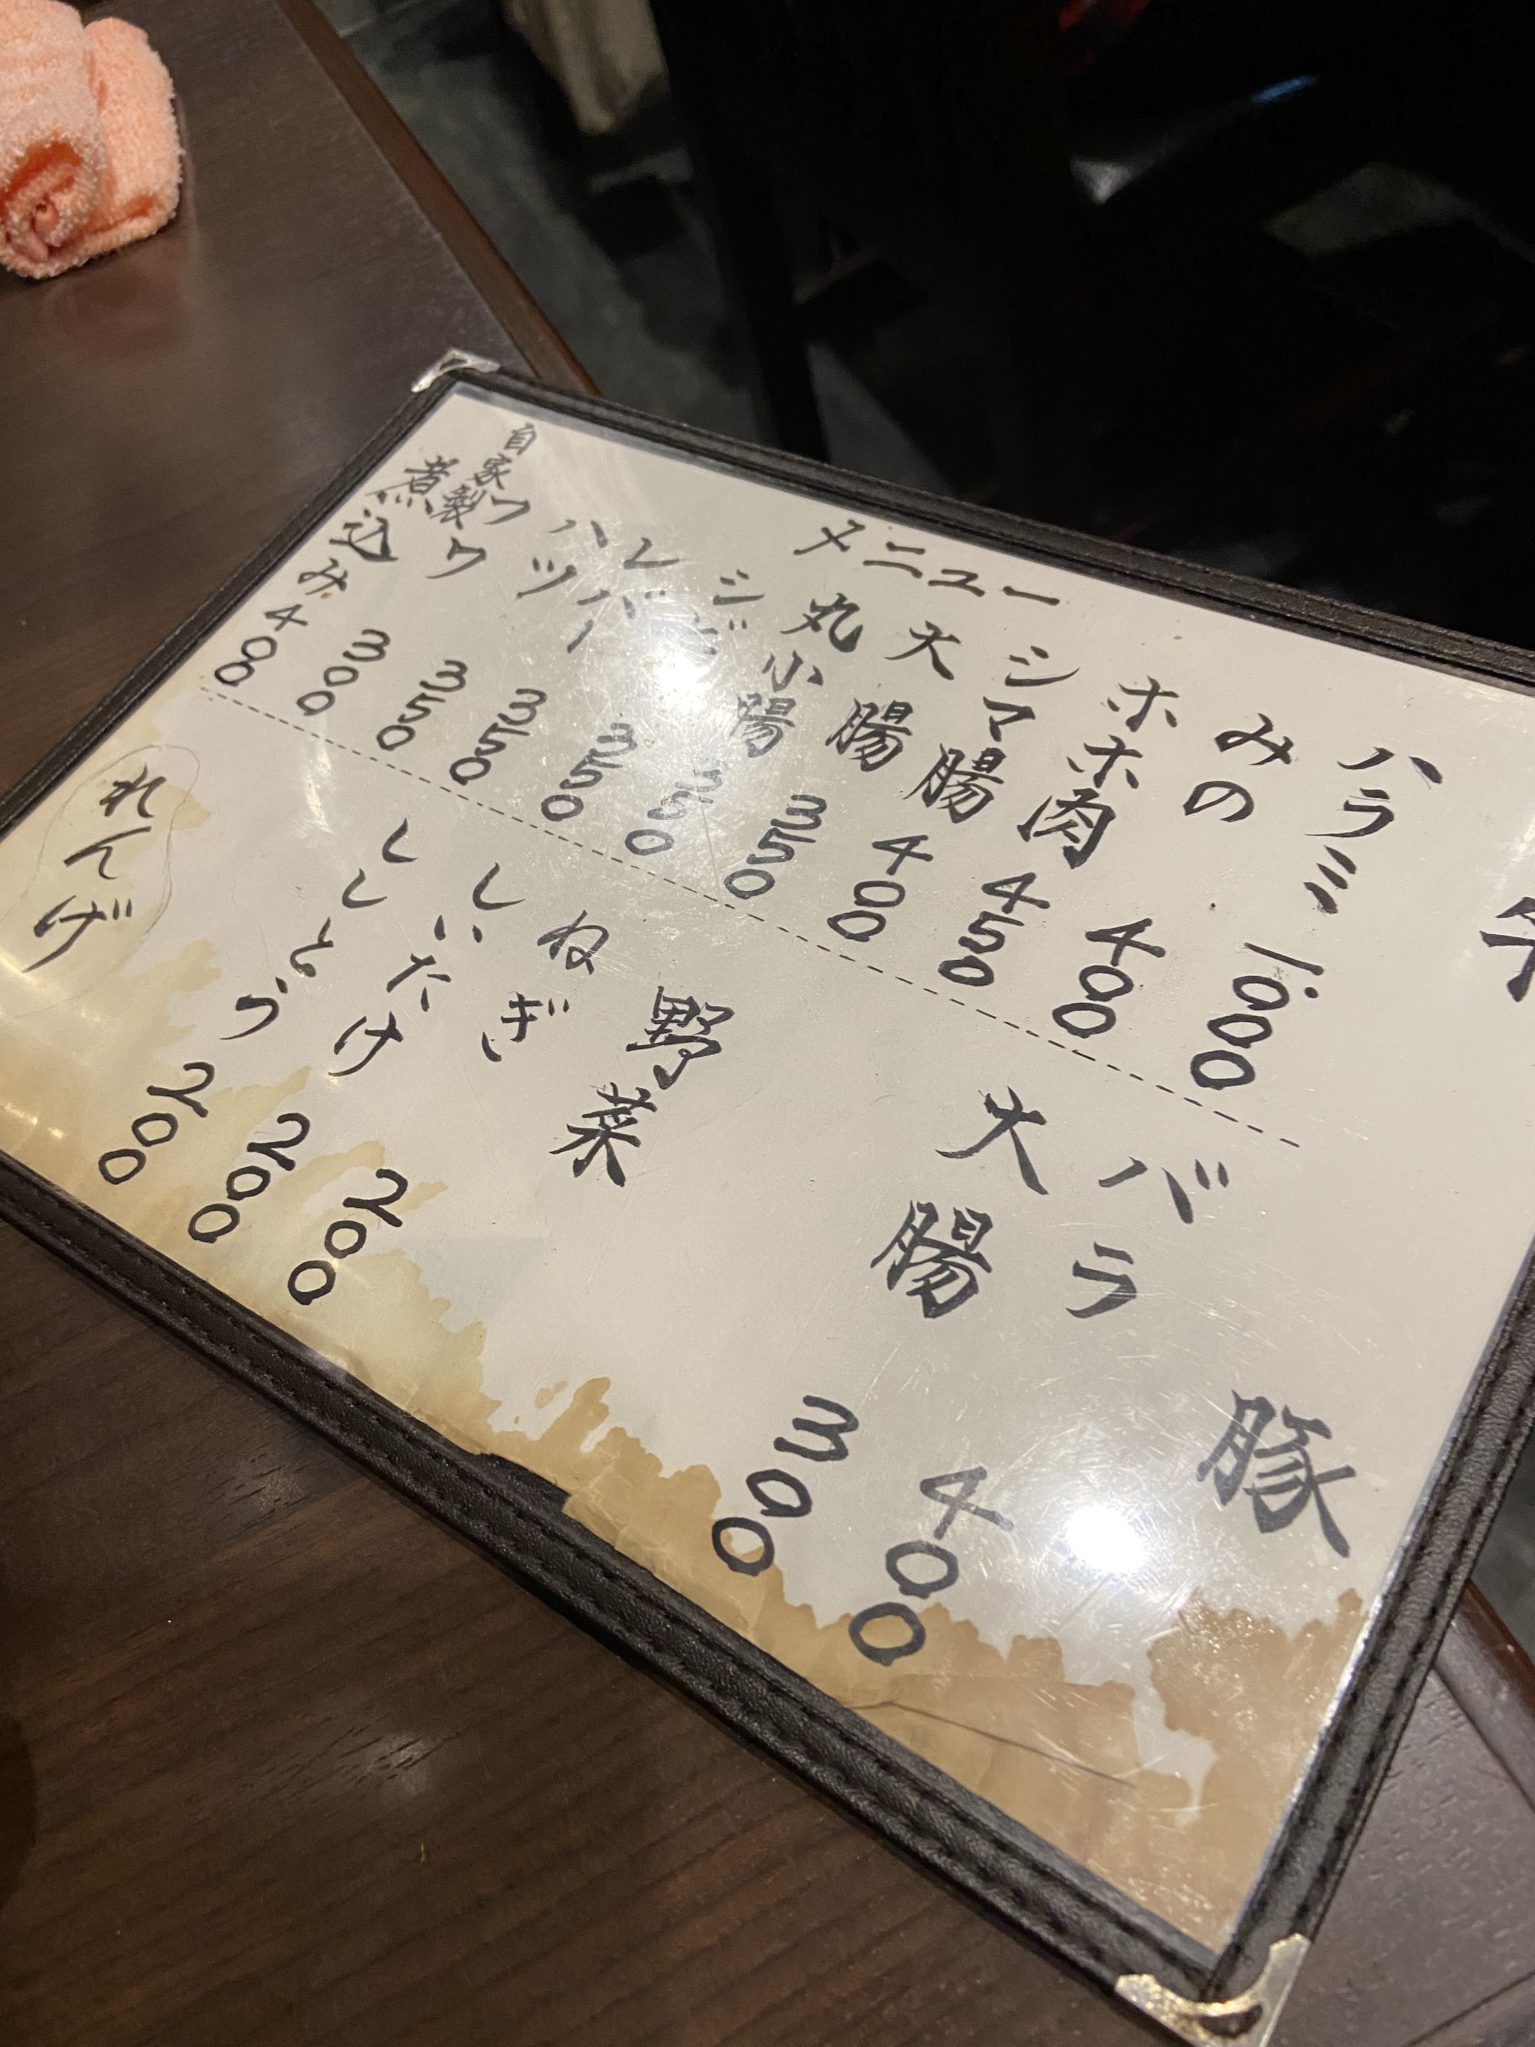 メニュー
牛
ハラミ 1.000
みの 400
ホホ肉 450
シマ腸 400
大腸 350
丸小腸 350
シビレ 350
レバー 350
ハツ 350
フワ 300
自家製
煮込み 400
豚
バラ 400
大腸 300
野菜
ねぎ 200
しいたけ 200
ししとう 200
れんげ